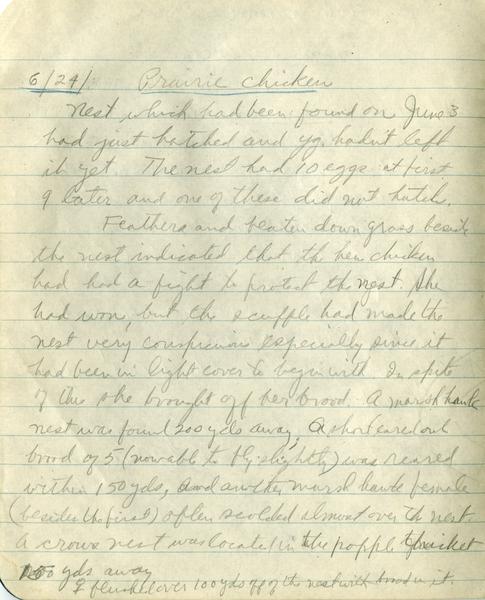 6/24/ Prairie Chicken
Nest which had been found on June 3
had just hatched and yg. hadn't left
it yet. The nest had 10 eggs at first
9 later and one of these did not hatch.
Feathers and beaten down grass beside
the nest indicated that the hen chicken
had had a fight to protect the nest. She
had won, but the scuffle had made the
nest very conspicuous especially since it
had been in light cover to begin with. In spite
of this she brought off her brood. A marsh hawk
nest was found 200 yds away; A short eared owl
brood of 5 (now able to fly slightly) was reared
within 150 yds, and another marsh hawk female
(besides the first) often scolded almost over the nest.
A crows nest was located in the popple thicket
yds away
flushed over 100 yds off of the nest with brood in it.